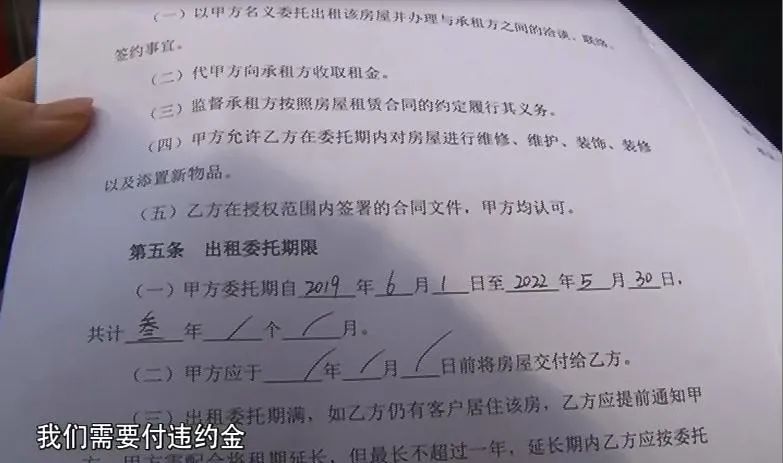 （一）以甲方名义委托出租该房屋并办理与承租方之间的洽谈、联络、
签约事宜。
（二）代甲方向承租方收取租金。
（三）监督承租方按照房屋租赁合同的约定履行其义务。
（四）甲方允许乙方在委托期内对房屋进行维修、维护、装饰、装修
以及添置新物品。
（五）乙方在授权范围内签署的合同文件，甲方均认可。
第五条 出租委托期限
（一）甲方委托期自 2019 年 6 月 1 日至 2022 年 5 月 30 日，
共计 叁 年 / 个 / 月。
（二）甲方应于 / 年 / 月 / 日前将房屋交付给乙方。
（三）出租委托期满，如乙方仍有客户居住该房，乙方应提前通知甲
方，甲方需配合将租期延长，但最长不超过一年，延长期内乙方应按委托
我们需要付违约金